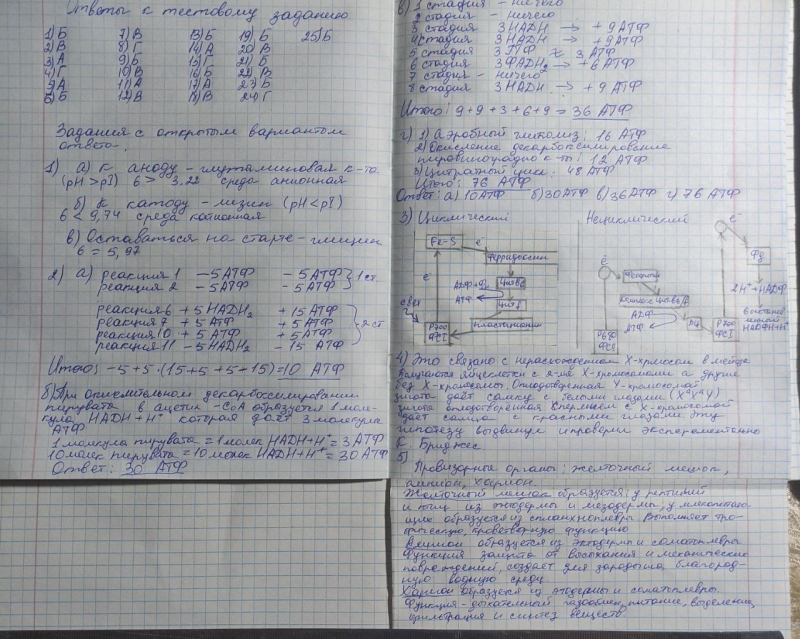 Ответы к тестовому заданию
1) Б 7) В 13) Б 19) Б 25) Б
2) В 8) Г 14) А 20) В
3) А 9) Б 15) Г 21) Б
4) Г 10) В 16) Б 22) В
5) А 11) А 17) А 23) Б
6) Б 12) В 18) В 24) Г
Задания с открытым вариантом
ответа.
1) а) К аноду – глутаминовая к-та
(pH > pI) 6 > 3,22 среда анионная
б) К катоду – лизин (pH < pI)
6 < 9,74 среда катионная
в) Оставаться на старте – глицин
6 = 5,97
2) а) реакция 1 – 5 АТФ – 5 АТФ } 1 ст.
реакция 2 – 5 АТФ – 5 АТФ
реакция 6 + 5 НАDH₂ + 15 АТФ
реакция 7 + 5 АТФ + 5 АТФ } 2 ст
реакция 10 + 5 АТФ + 5 АТФ
реакция 11 – 5 НАDH₂ – 15 АТФ
Итого: -5+5·(15+5+5-15)=10 АТФ
б) При окислительном декарбоксилировании
пирувата в ацетил-CoA образуется 1 моле-
кула НАDH+H⁺ которая даёт 3 молекулы
АТФ
1 молекула пирувата = 1 молек НАDH+H⁺ = 3 АТФ
10 молек пирувата = 10 молек НАDH+H⁺ = 30 АТФ
Ответ: 30 АТФ
в) 1 стадия – ничего
2 стадия – ничего
3 стадия 3 НАDH → + 9 АТФ
4 стадия 3 НАDH → + 9 АТФ
5 стадия 3 ГТФ ≈ 3 АТФ
6 стадия 3 ФАDH₂ → + 6 АТФ
7 стадия – ничего
8 стадия 3 НАDH → + 9 АТФ
Итого: 9+9+3+6+9 = 36 АТФ
г) 1) Аэробный гликолиз: 16 АТФ
2) Окисление декарбоксилирование
пировиноградно к-ты: 12 АТФ
3) Цитратный цикл: 48 АТФ
Итого: 76 АТФ
Ответ: а) 10 АТФ б) 30 АТФ в) 36 АТФ г) 76 АТФ
3) Циклический Нециклический
Fe-S e⁻ Ферридоксин
e⁻ АДФ+Фн Цит b6
АТФ Цит f
свет P700 ФСI пластоцианин
e⁻ P680 ФСII
АДФ АТФ
ПЦ P700 ФСI
e⁻ Фд
2H⁺+НАДФ
НАДФН+H⁺
4) Это связано с нерасхождением Х-хромосом в мейозе
яйцеклетки с 2-мя Х-хромосомами а другие
без Х-хромосомы. Оплодотворённая Y-хромосомой
зигота даёт самку с белыми глазами (XᵃXᵃY)
зигота оплодотворённая спермием с Х-хромосомой
даёт самца с красными глазами. Эту
гипотезу выдвинул и проверил экспериментально
К. Бриджес.
5)
Провизорные органы: желточный мешок,
амнион, хорион.
Желточный мешок образуется: у рептилий
и птиц из энтодермы и мезодермы, у млекопитаю-
щих образуется из спланхноплевры. Выполняет тро-
фическую, кроветворную функцию
Амнион образуется из эктодермы и соматоплевры.
Функция защита от высыхания и механических
повреждений, создаёт для зародыша благород-
ную водную среду.
Хорион образуется из эктодермы и соматоплевры.
Функция – дыхательный газообмен, питание, выделение,
фильтрация и синтез веществ.